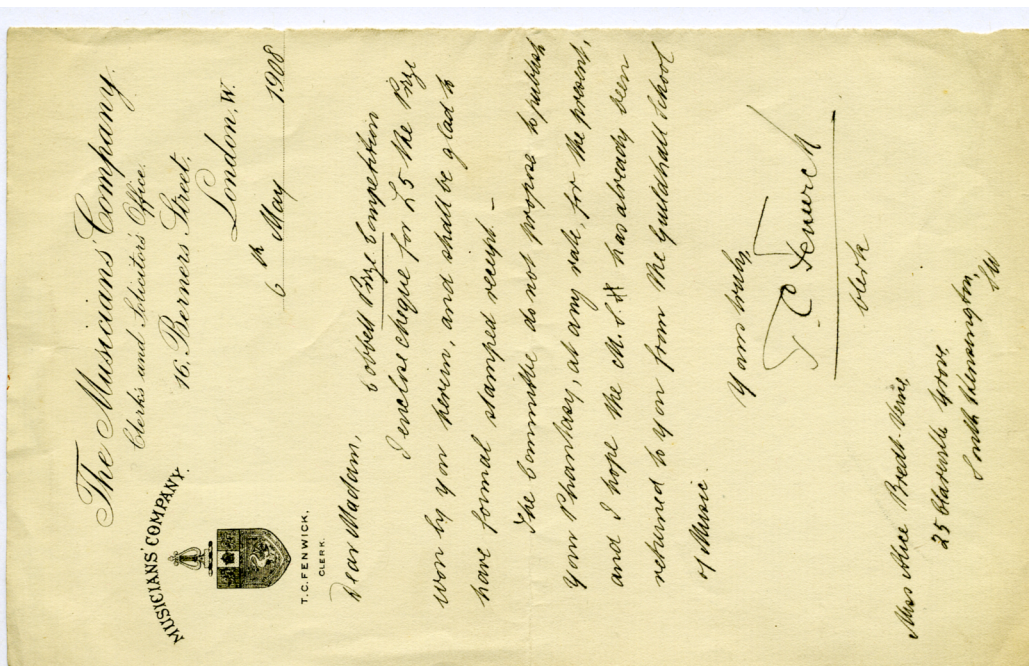 The Musicians' Company.
Clerk's and Solicitor's Office.
16. Berners Street,
London, W.
6th May 1908
MUSICIANS' COMPANY.
T. C. FENWICK,
CLERK.
Dear Madam,
Cobbett Prize Competition
I enclose cheque for £5 the Prize
won by you herein, and shall be glad to
have formal stamped receipt. –
The Committee do not propose to publish
your Phantasy, at any rate, for the present,
and I hope the M.S. has already been
returned to you from the Guildhall School
of Music.
Yours truly
T C Fenwick
Clerk
Miss Alice Bredt-Verne
25 Clareville Grove
South Kensington,
SW